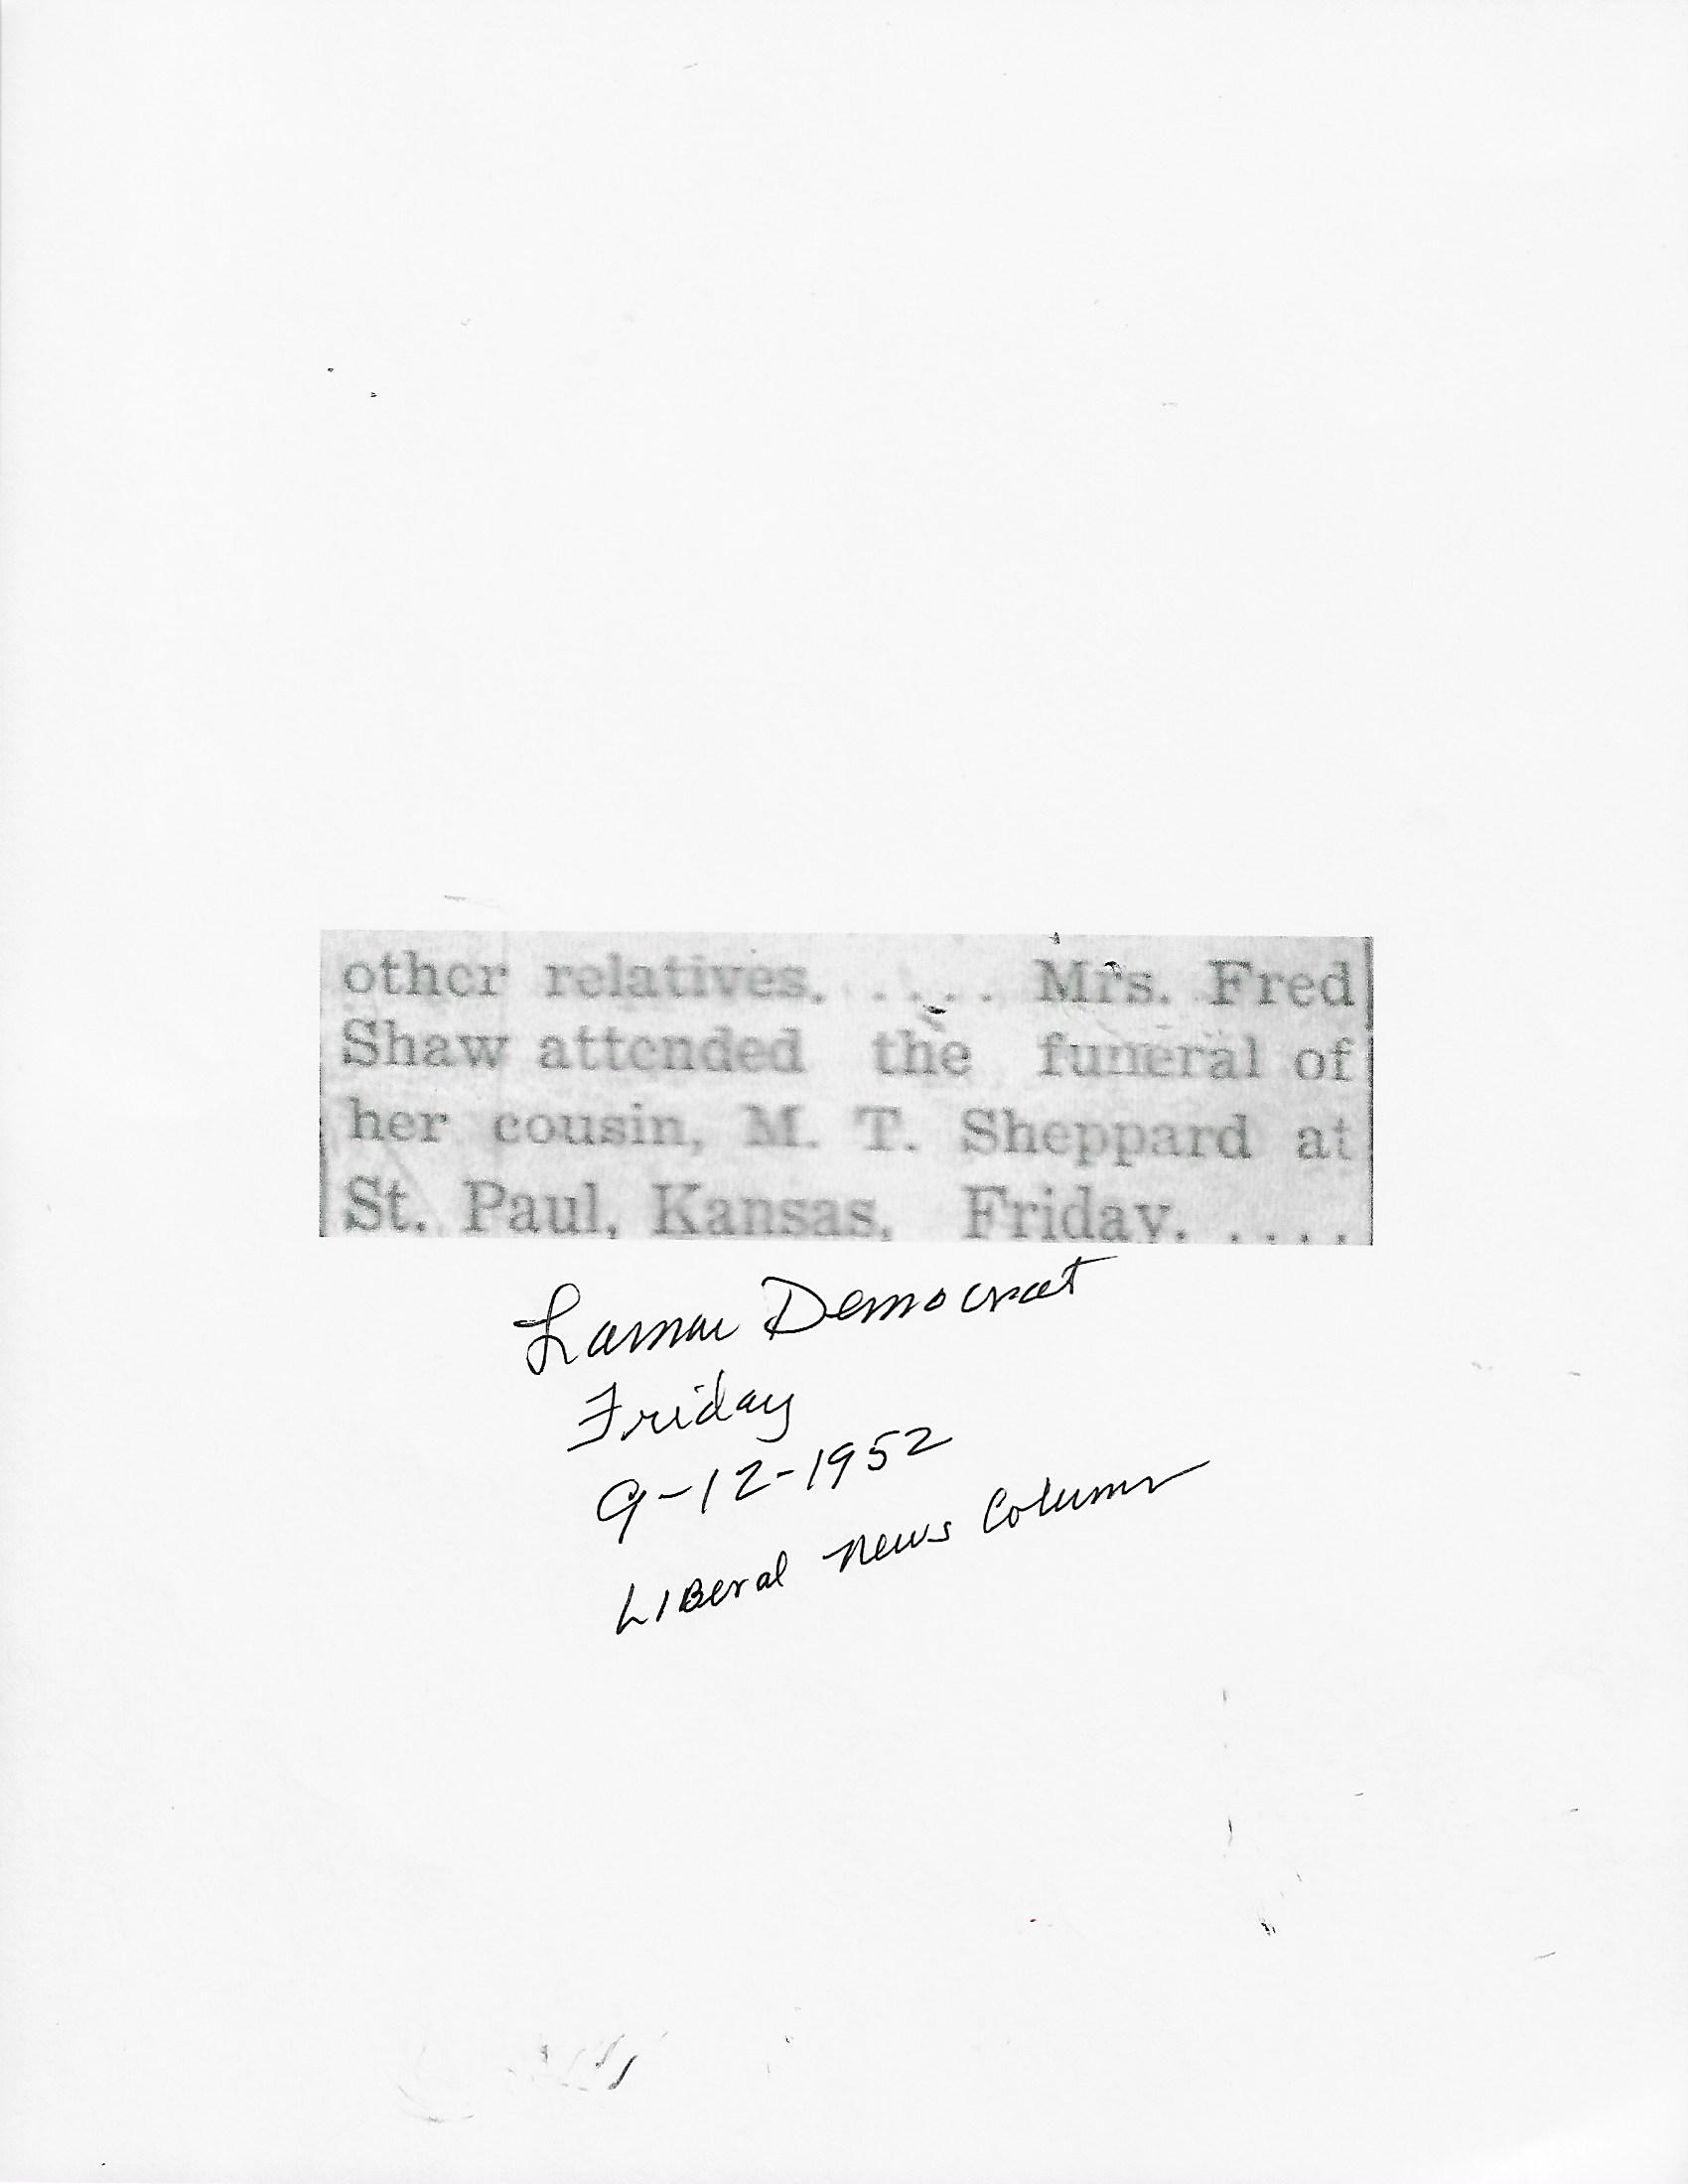 other relatives. .... Mrs. Fred
Shaw attended the funeral of
her cousin, M. T. Sheppard at
St. Paul, Kansas, Friday. ....
Lamar Democrat
Friday
9-12-1952
LIBeral News Column